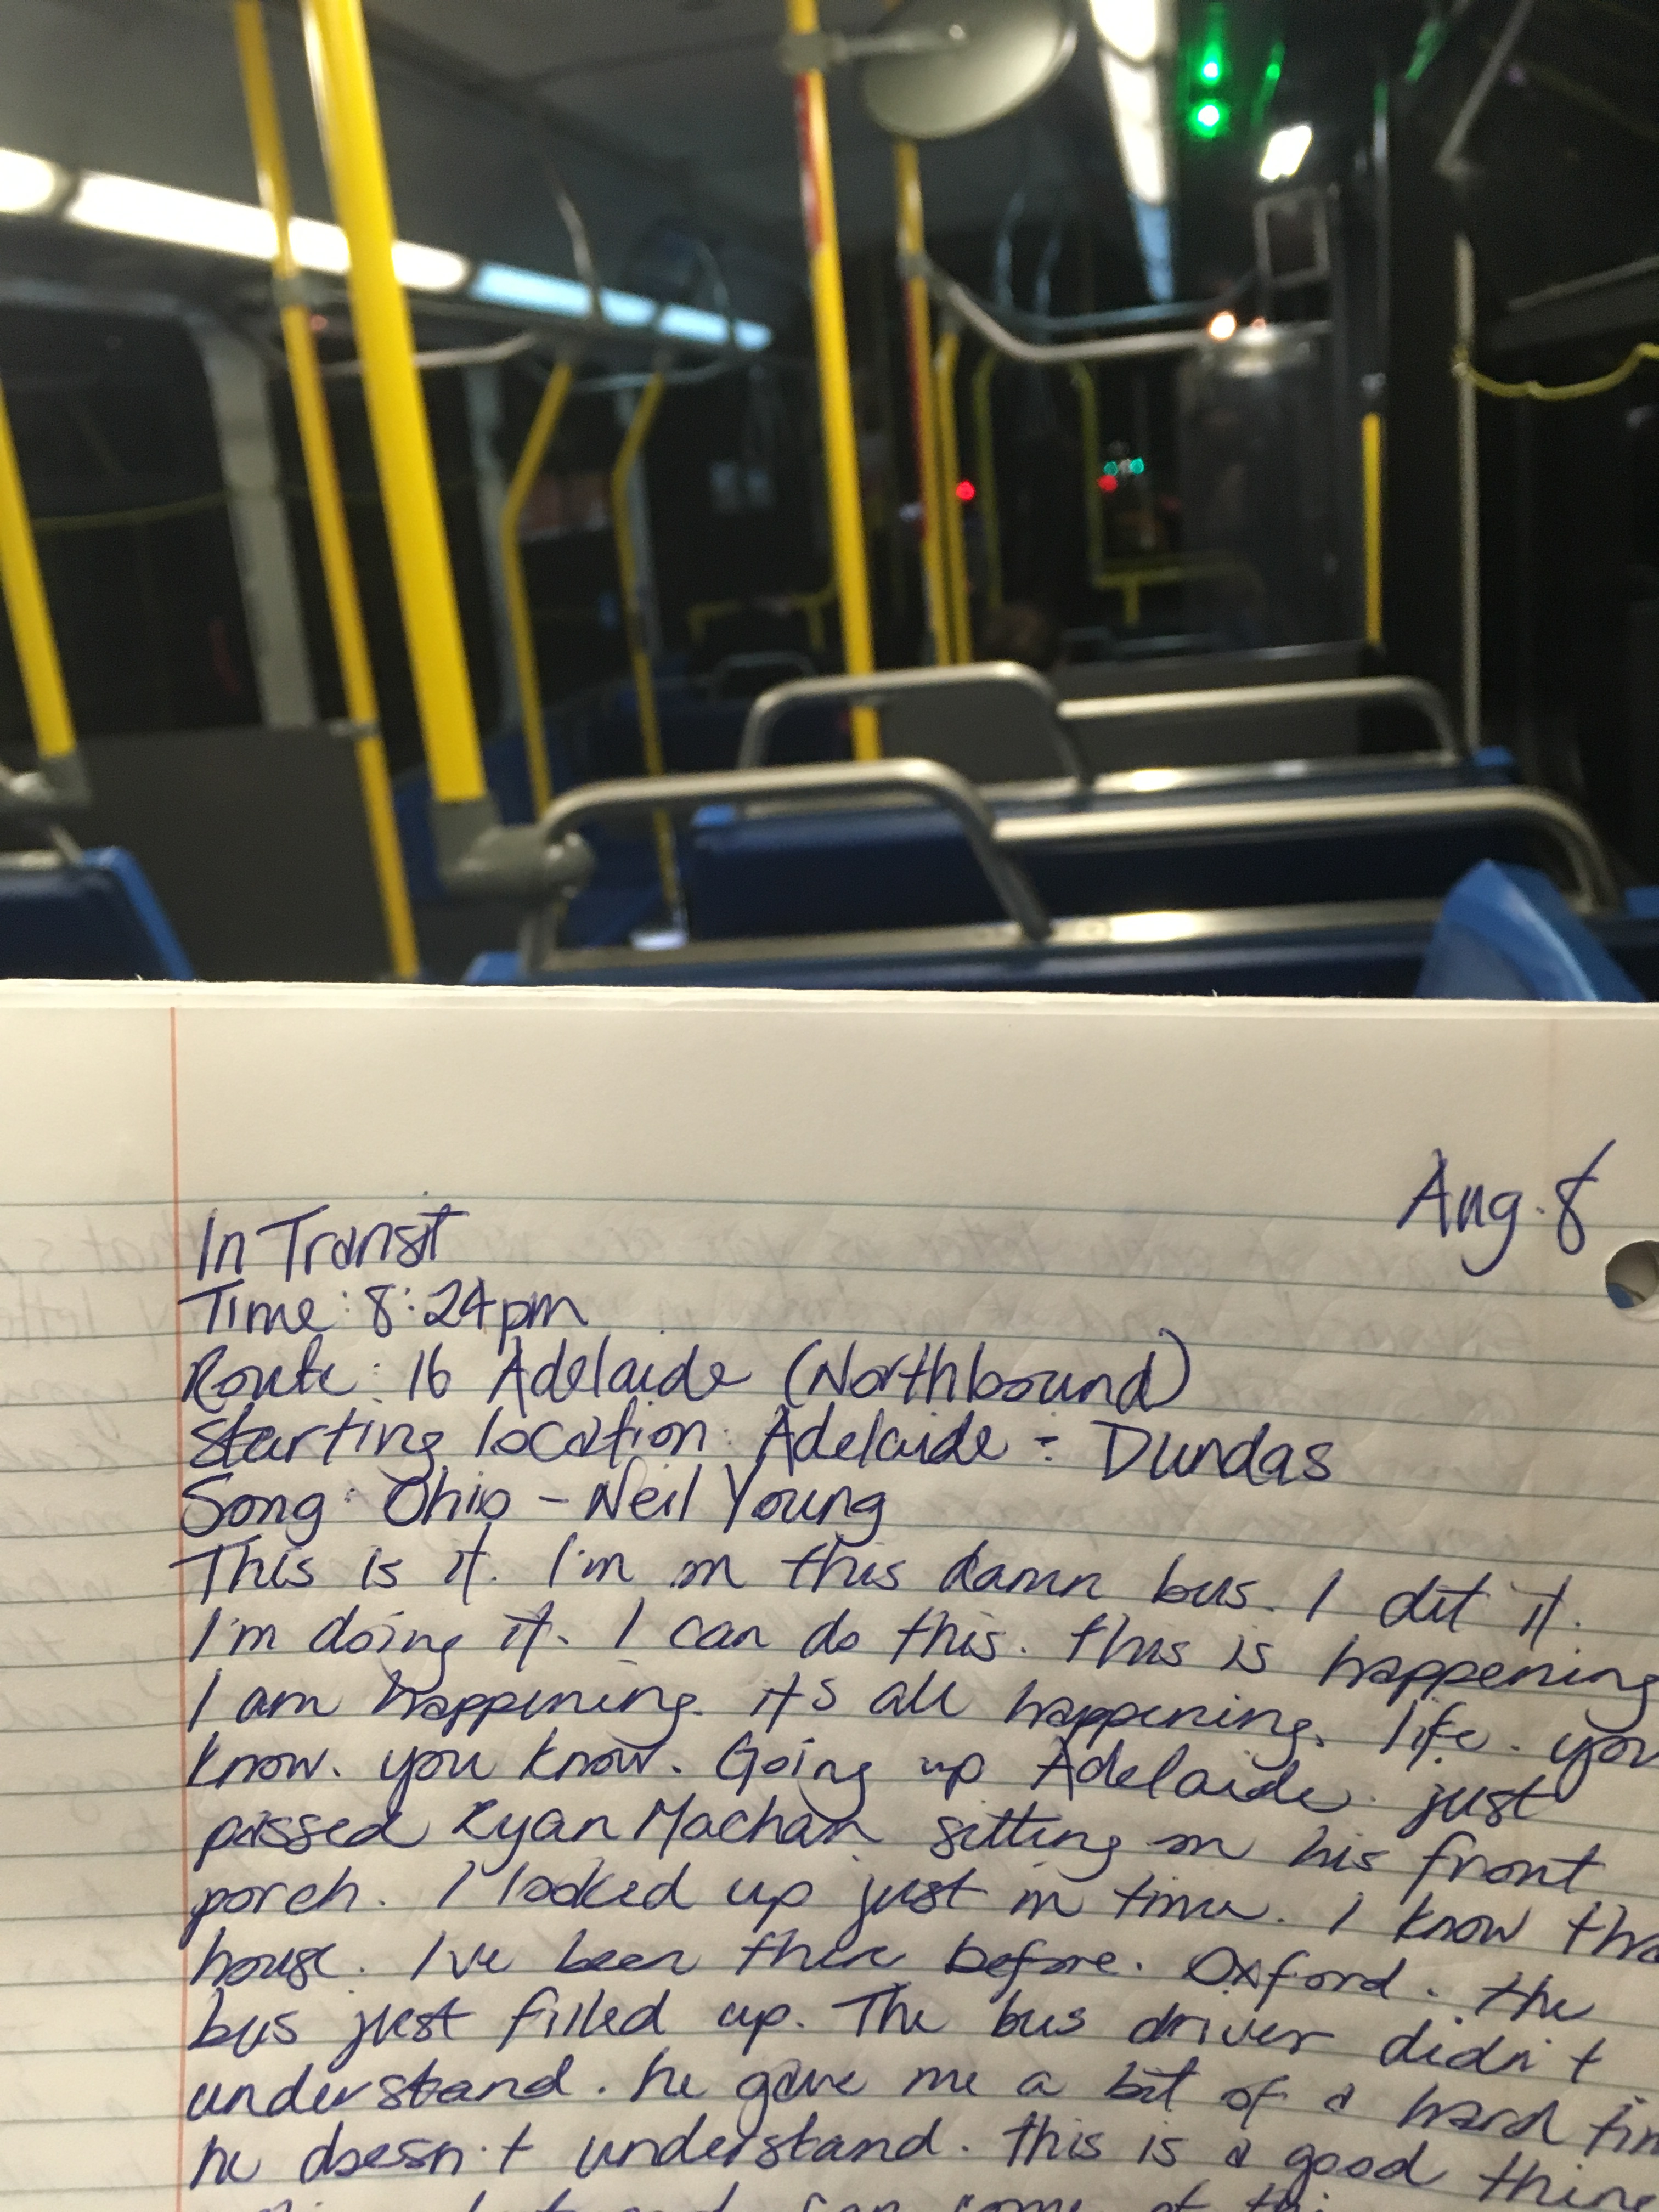 Aug. 8
In Transit
Time: 8:24pm
Route: 16 Adelaide (Northbound)
Starting location: Adelaide ÷ Dundas
Song: Ohio - Neil Young
This is it. I'm on this damn bus. I did it.
I'm doing it. I can do this. this is happening
I am happening. it's all happening. life. you
know. you know. Going up Adelaide. just
passed Ryan Machan sitting on his front
porch. I looked up just in time. I know
house. I've been there before. Oxford. the
bus just filled up. The bus driver didn't
understand. he gave me a bit of a hard
he doesn't understand. this is a good thing